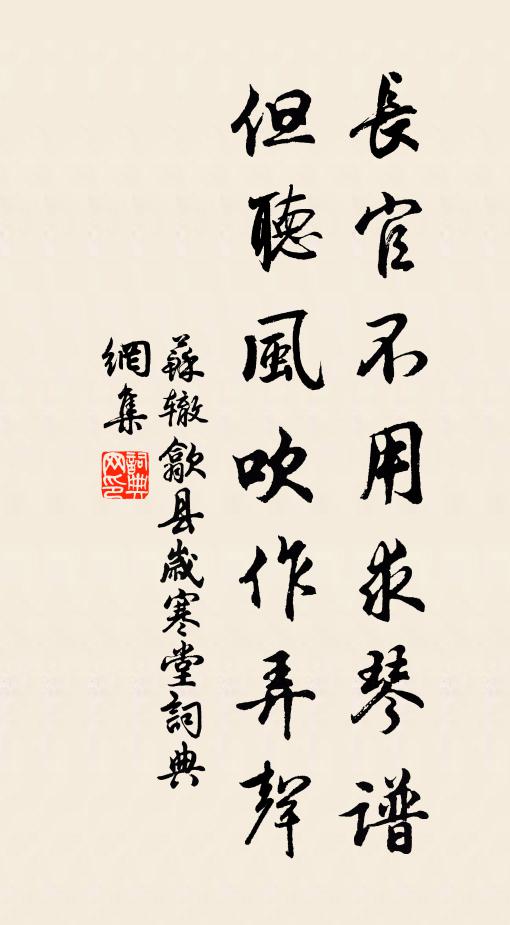 長官不用求琴譜
但聽風吹作弄聲
蘇辙歙县嵗寒堂詞典
網集
詞典
网印